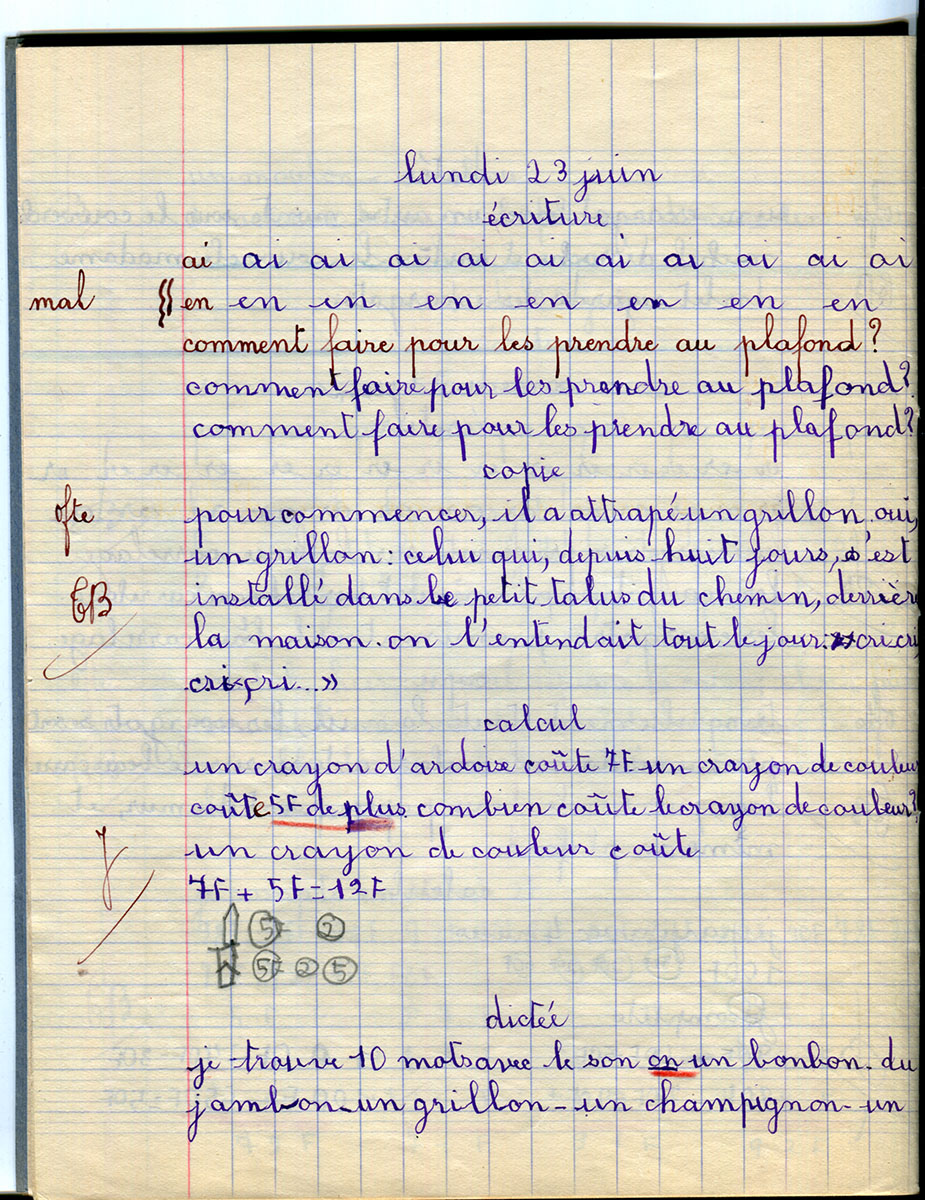 lundi 23 juin
écriture
ai ai ai ai ai ai ai ai ai ai ai
mal en en en en en en en en
comment faire pour les prendre au plafond?
comment faire pour les prendre au plafond?
comment faire pour les prendre au plafond?
copie
pour commencer, il a attrapé un grillon. oui,
un grillon: celui qui, depuis huit jours, s'est
TB installé dans le petit talus du chemin, derrière
la maison. on l'entendait tout le jour: «cri cri,
cri, cri...»
calcul
un crayon d'ardoise coûte 7F un crayon de couleur
coûte 5F de plus. combien coûte le crayon de couleur?
un crayon de couleur coûte
7F + 5F = 12F
5F 2
5F 2 5
dictée
je trouve 10 mots avec le son on un bonbon. du
jambon - un grillon - un champignon - un